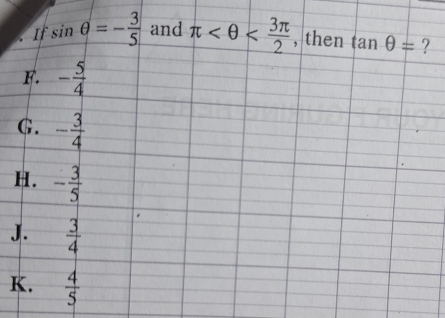 . If sin θ = -3/5 and π < θ < 3π/2, then tan θ = ?
F. -5/4
G. -3/4
H. -3/5
J. 3/4
K. 4/5